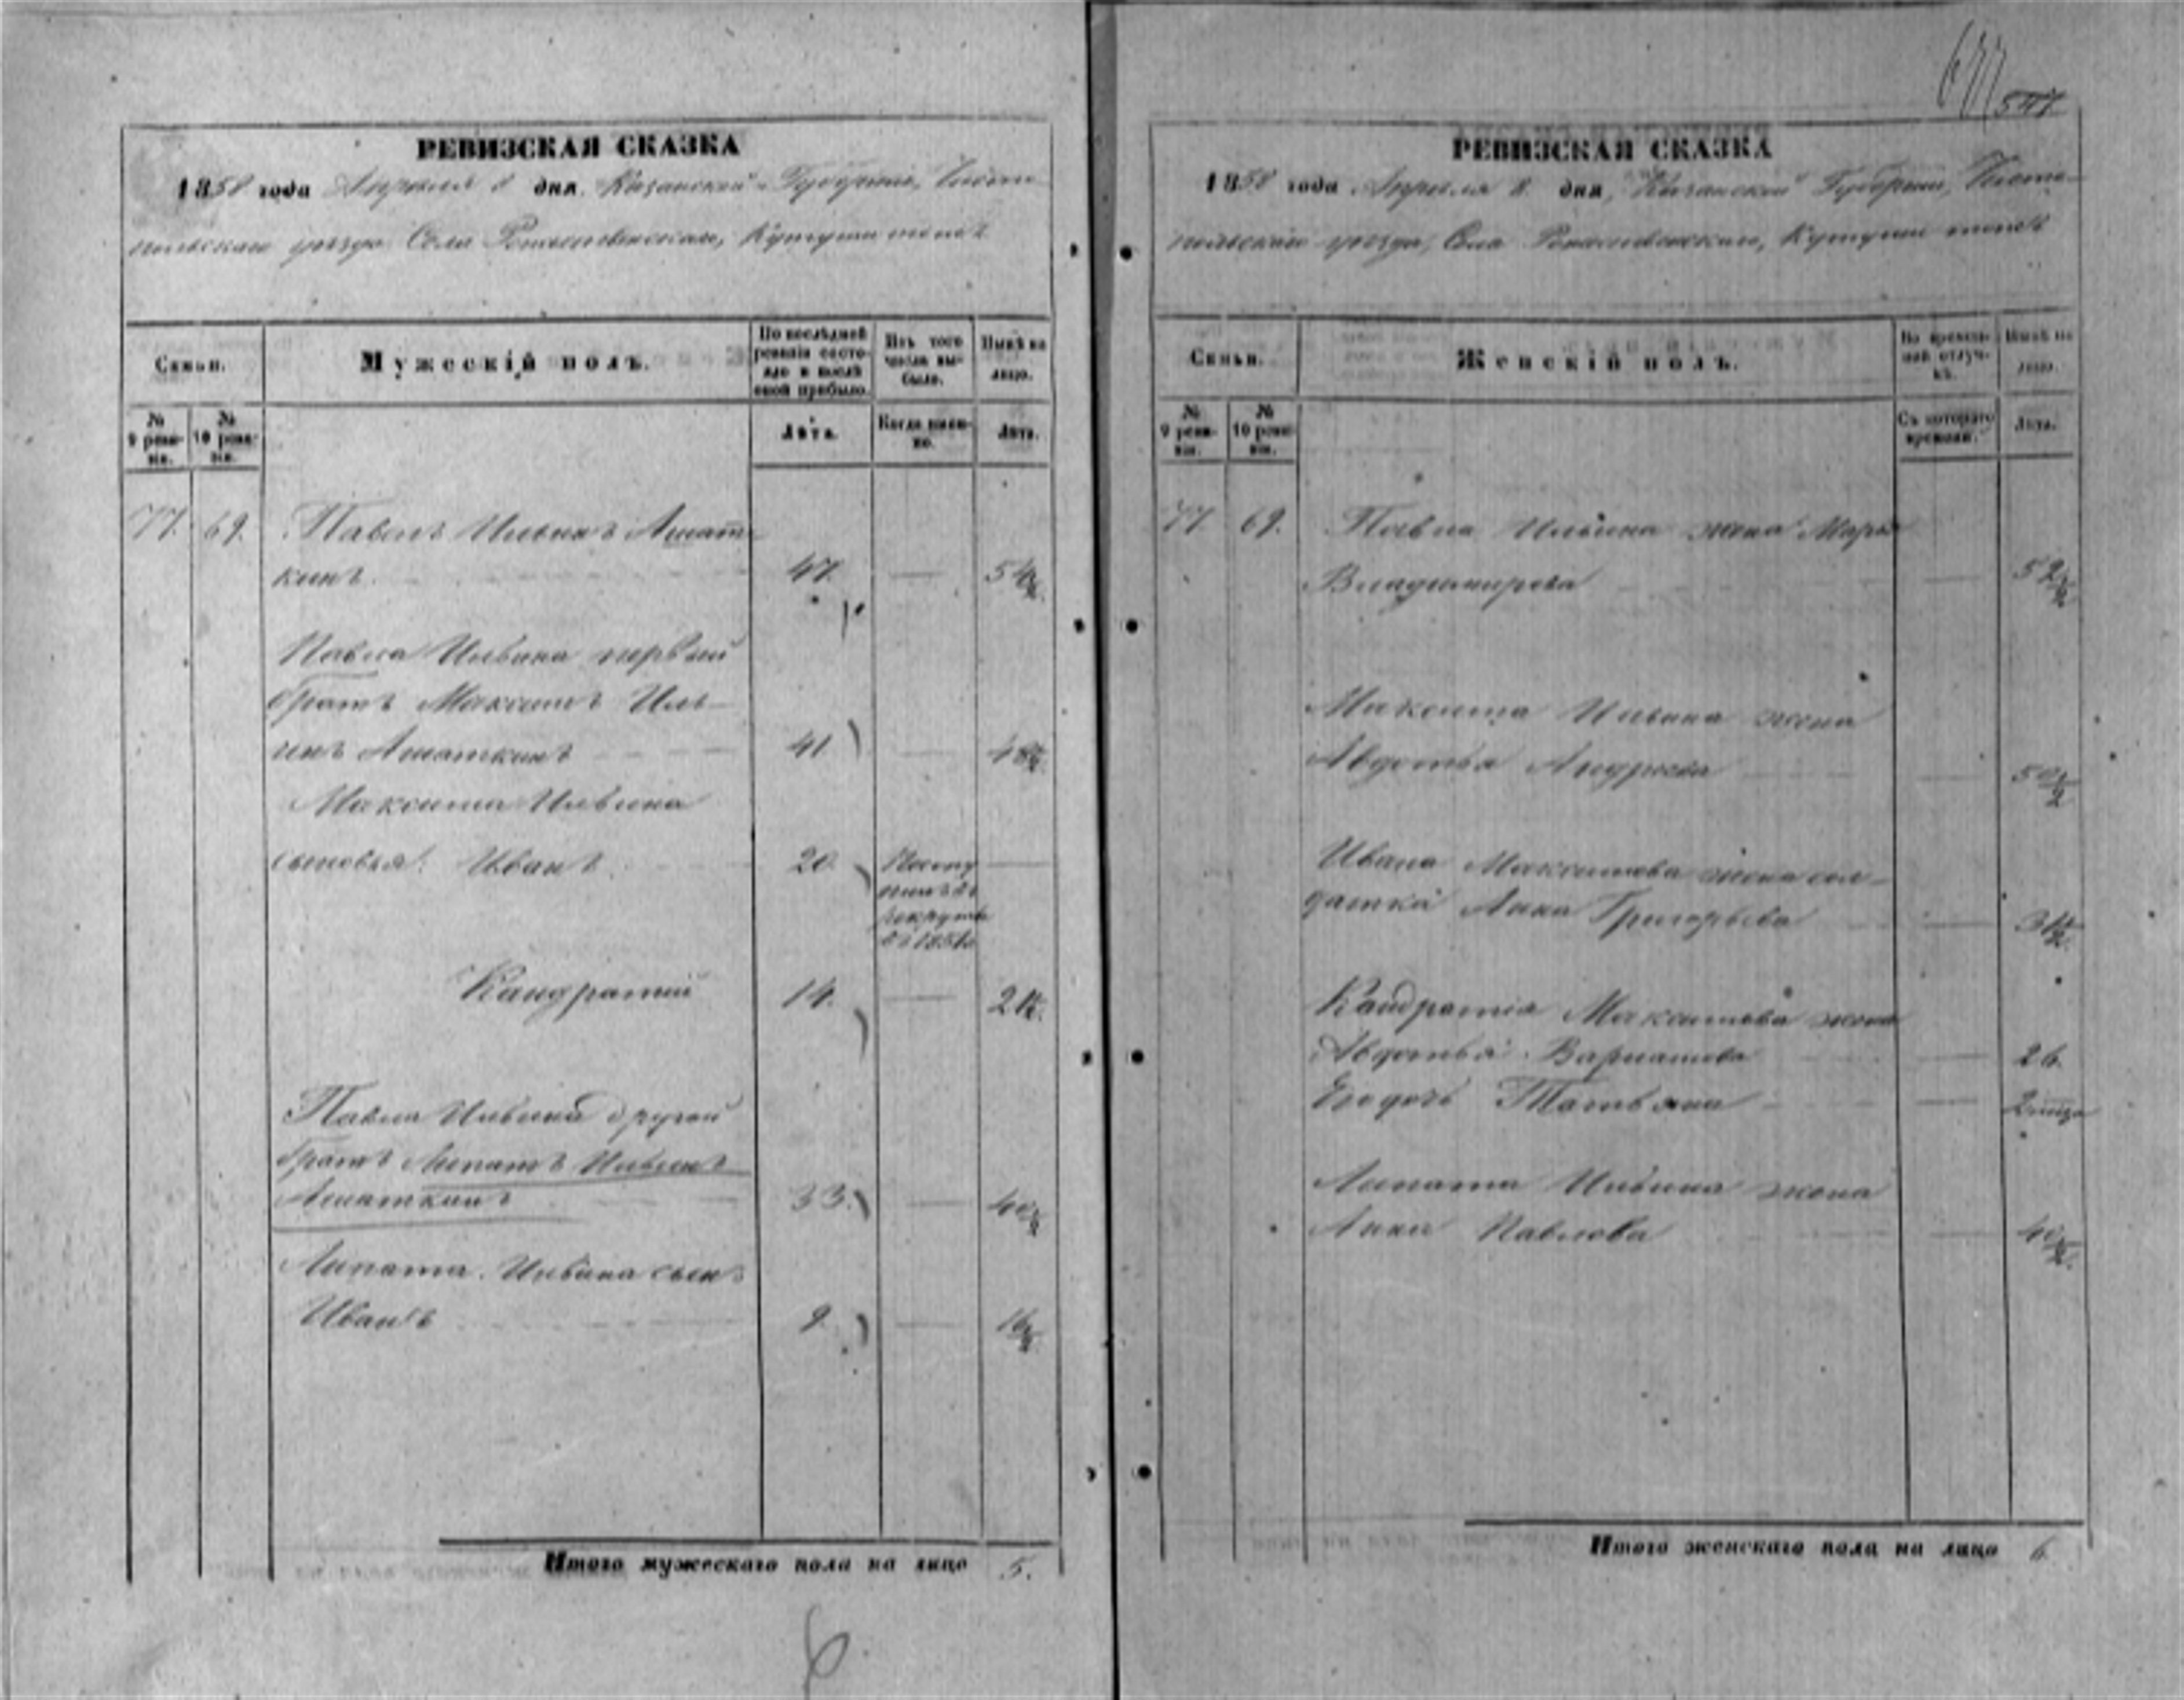 677
547
РЕВИЗСКАЯ СКАЗКА
1858 года Апреля 8 дня, Казанской Губернiи, Чисто-
польскаго уезда Села Рождественскаго, Кутуши тожъ
Семьи.
Мужескiй полъ.
По послѣдней ревизiи состояло и послѣ оной прибыло.
Изъ того числа выбыло.
Нынѣ на лицо.
№ 9 ревизiи.
№ 10 ревизiи.
Лѣта.
Когда именно.
Лѣта.
77. 69. Павелъ Ильинъ Ашат-
кинъ. 47. — 54½.
Павла Ильина первый
братъ Максимъ Иль-
инъ Ашаткинъ 41 — 48½.
Максима Ильина
сыновья: Иванъ. 20. Посту
пилъ въ
рекруты
въ 1851г.
Кандратiй 14. — 21½.
Павла Ильина другой
братъ Липатъ Ильинъ
Ашаткинъ 33. — 40½
Липата Ильина сынъ
Иванъ 9. — 16½.
Итого мужескаго пола на лицо 5.
РЕВИЗСКАЯ СКАЗКА
1858 года Апреля 8. дня, Казанской Губернiи, Чисто-
польскаго уезда, Села Рождественскаго, Кутуши тожъ
Семьи.
Женскiй полъ.
Во временной отлучкѣ.
Нынѣ на лицо.
№ 9 ревизiи.
№ 10 ревизiи.
Съ котораго времени.
Лѣта.
77 69. Павла Ильина жена Марья
Владимирова — 52½
Максима Ильина жена
Авдотья Андреева — 50½
Ивана Максимова жена сол-
датка Анна Григорьева — 31½.
Кандратiя Максимова жена
Авдотья Варламова — 26.
Его дочь Татьяна — 2 мца
Липата Ильина жена
Анна Павлова — 40½.
Итого женскаго пола на лицо 6.